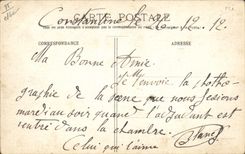 Constantine le 6 - 12 - 12
CARTE POSTALE
CORRESPONDANCE
ADRESSE
Ma Bonne Amie
Je t'envoie la photo-
graphie de la scène que nous fesions
mardi au soir quand l'adjudant est
rentré dans la chambre.
Celui qui t'aime